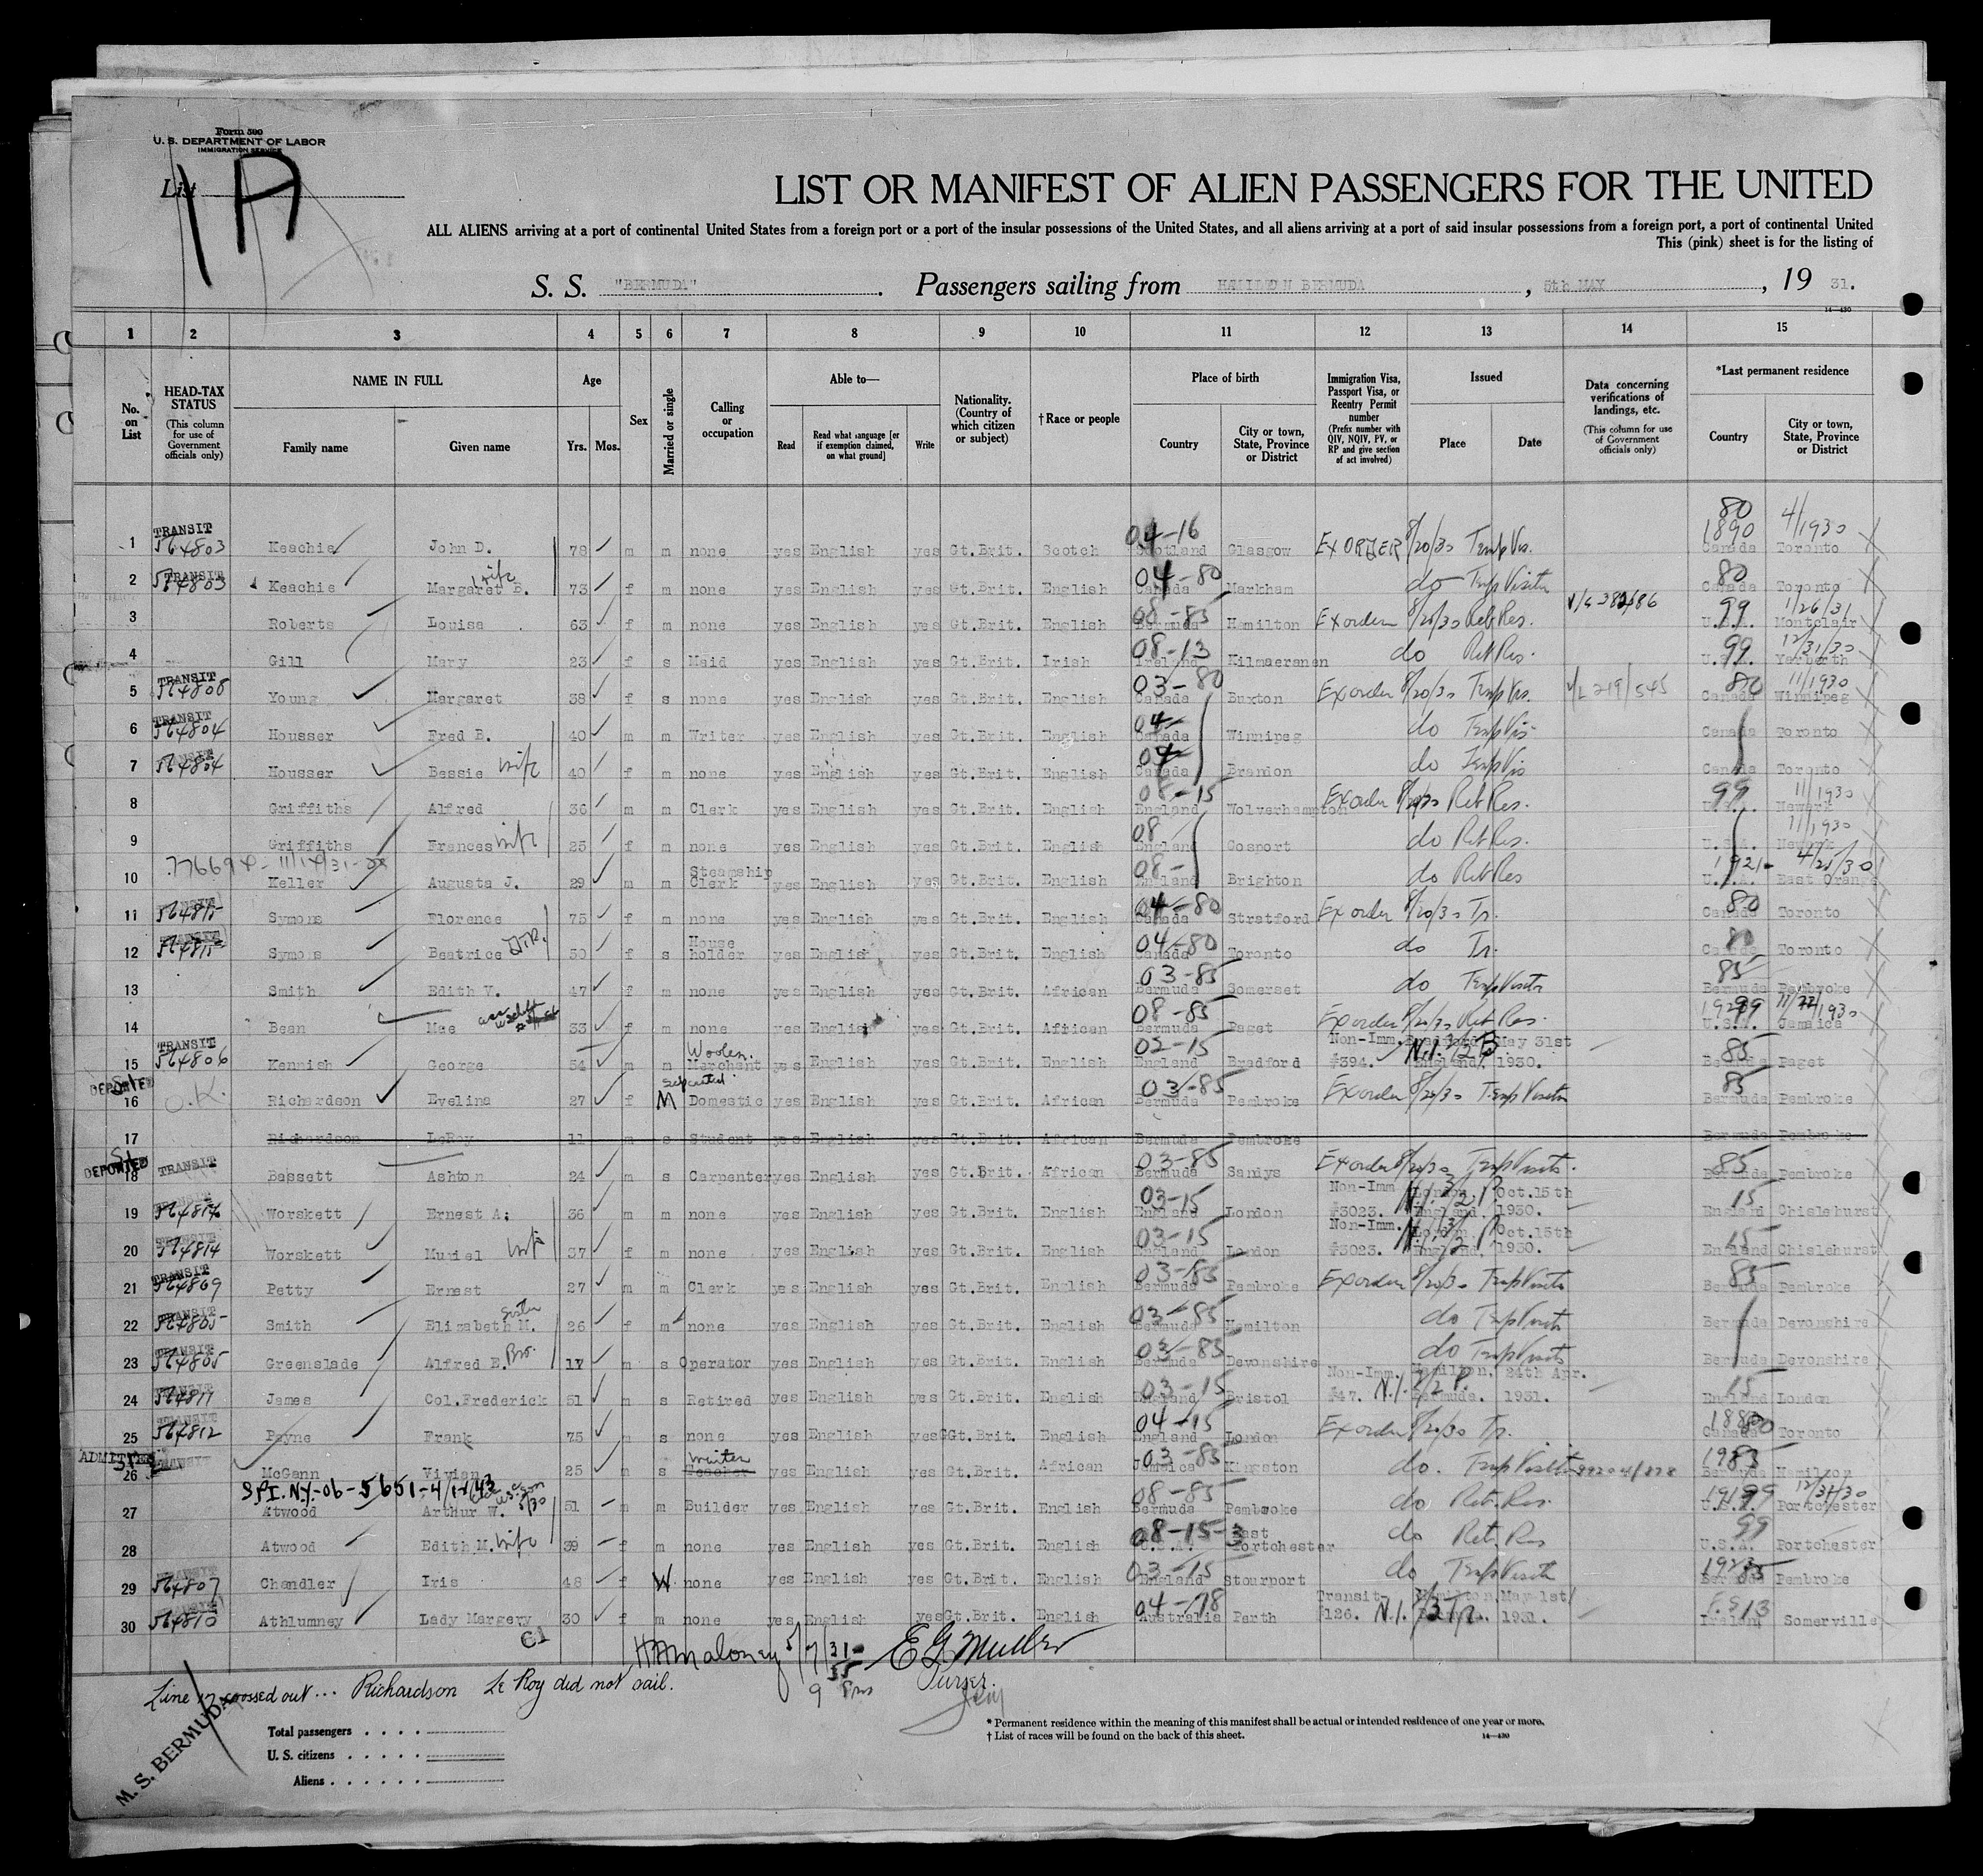 Form 500
U. S. DEPARTMENT OF LABOR
IMMIGRATION SERVICE
List 1A
LIST OR MANIFEST OF ALIEN PASSENGERS FOR THE UNITED
ALL ALIENS arriving at a port of continental United States from a foreign port or a port of the insular possessions of the United States, and all aliens arriving at a port of said insular possessions from a foreign port, a port of continental United
This (pink) sheet is for the listing of
S. S. "BERMUDA". Passengers sailing from HAMILTON BERMUDA, 5th MAY, 19 31.
14—430
1 2 3 4 5 6 7 8 9 10 11 12 13 14 15
No. on List
HEAD-TAX STATUS (This column for use of Government officials only)
NAME IN FULL Family name Given name
Age Yrs. Mos.
Sex
Married or single
Calling or occupation
Able to— Read Read what language [or if exemption claimed, on what ground] Write
Nationality. (Country of which citizen or subject)
† Race or people
Place of birth Country City or town, State, Province or District
Immigration Visa, Passport Visa, or Reentry Permit number (Prefix number with QIV, NQIV, PV, or RP and give section of act involved)
Issued Place Date
Data concerning verifications of landings, etc. (This column for use of Government officials only)
*Last permanent residence Country City or town, State, Province or District
1 TRANSIT 564803 Keachie John D. 78 m m none yes English yes Gt.Brit. Scotch 04-16 Scotland Glasgow Ex ORDER 8/20/30 Temp Vis. 80 1890 4/1930 Canada Toronto
2 TRANSIT 564803 Keachie Margaret B. wife 73 f m none yes English yes Gt.Brit. English 04-80 Canada Markham do Temp Visitor 80 Canada Toronto
3 Roberts Louisa 63 f m none yes English yes Gt.Brit. English 08-85 Bermuda Hamilton Ex order 8/20/30 Ret Res. 99 1/26/31 U.S.A. Montclair
4 Gill Mary 23 f s Maid yes English yes Gt.Brit. Irish 08-13 Ireland do Ret Res. 99 12/31/30 U.S.A.
5 TRANSIT 564808 Young Margaret 38 f s none yes English yes Gt.Brit. English 03-80 Canada Buxton Ex order 8/20/30 Temp Vis. V/L 219/545 80 11/1930 Canada Winnipeg
6 TRANSIT 564804 Housser Fred B. 40 m m Writer yes English yes Gt.Brit. English 04 Canada Winnipeg do Temp Vis Canada Toronto
7 TRANSIT 564804 Housser Bessie wife 40 f m none yes English yes Gt.Brit. English 04 Canada Brandon do Temp Vis Canada Toronto
8 Griffiths Alfred 36 m m Clerk yes English yes Gt.Brit. English 08-15 England Wolverhampton Ex order 8/20/30 Ret Res. 99 11/1930 U.S.A. Newark
9 Griffiths Frances wife 25 f m none yes English yes Gt.Brit. English 08 England Gosport do Ret Res. 11/1930 U.S.A. Newark
10 Keller Augusta J. 29 m m Steamship Clerk yes English yes Gt.Brit. English 08- England Brighton do Ret Res 1921- 4/25/30 U.S.A. East Orange
11 TRANSIT 564815 Symons Florence 75 f m none yes English yes Gt.Brit. English 04-80 Canada Stratford Ex order 8/20/30 Tr. 80 Canada Toronto
12 TRANSIT 564815 Symons Beatrice 50 f s House holder yes English yes Gt.Brit. English 04-80 Canada Toronto do Tr. 80 Canada Toronto
13 Smith Edith V. 47 f m none yes English yes Gt.Brit. African 03-85 Bermuda Somerset do Temp Visitor 85 Bermuda Pembroke
14 Bean Mae 33 f m none yes English yes Gt.Brit. African 08-85 Bermuda Paget Ex order 8/20/30 Ret Res. 99 11/22/1930 U.S.A. Jamaica
15 TRANSIT 564806 Kennish George 54 m m Woolen. Merchant yes English yes Gt.Brit. English 02-15 England Bradford Non-Imm. #394. Bradford England, May 31st 1930. N.I. 3/2 B 85 Bermuda Paget
DEPORTED SI O.K.
16 Richardson Evelina 27 f M separated Domestic yes English yes Gt.Brit. African 03-85 Bermuda Pembroke Ex order 8/20/30 Temp Visitor 85 Bermuda Pembroke
17 Richardson LeRoy 11 m s Student yes English yes Gt.Brit. African Bermuda Pembroke Bermuda Pembroke
DEPORTED SI
18 TRANSIT Bassett Ashton 24 m s Carpenter yes English yes Gt.Brit. African 03-85 Bermuda Sandys Ex order 8/20/30 Temp Visitor. 85 Bermuda Pembroke
19 TRANSIT 564814 Worskett Ernest A. 36 m m none yes English yes Gt.Brit. English 03-15 England London Non-Imm #3023. London England. Oct.15th 1930. N.I. 3/2 P. 15 England Chislehurst
20 TRANSIT 564814 Worskett Muriel wife 37 f m none yes English yes Gt.Brit. English 03-15 England London Non-Imm. #3023. London England. Oct.15th 1930. N.I. 3/2 P 15 England Chislehurst
21 TRANSIT 564809 Petty Ernest 27 m m Clerk yes English yes Gt.Brit. English 03-85 Bermuda Pembroke Ex order 8/20/30 Temp Visitor 85 Bermuda Pembroke
22 TRANSIT 564805 Smith Elizabeth M. sister 26 f m none yes English yes Gt.Brit. English 03-85 Bermuda Hamilton do Temp Visitor Bermuda Devonshire
23 TRANSIT 564805 Greenslade Alfred E. Bro. 17 m s Operator yes English yes Gt.Brit. English 03-85 Bermuda Devonshire do Temp Visitor Bermuda Devonshire
24 TRANSIT 564811 James Col.Frederick 51 m s Retired yes English yes Gt.Brit. English 03-15 England Bristol Non-Imm. #47. Hamilton, Bermuda. 24th Apr. 1931. N.I. 3/2 P. 15 England London
25 TRANSIT 564812 Payne Frank 75 m s none yes English yes Gt.Brit. English 04-15 England London Ex order 8/20/30 Tr. 1880 Canada Toronto
ADMITTED SI
26 TRANSIT McGann Vivian 25 m s Waiter yes English yes Gt.Brit. African 03-85 Jamaica Kingston do. Temp Visitor 1985 Bermuda Hamilton
SPI. N.Y.-06-5651-4/14/43
27 Atwood Arthur W. 51 m m Builder yes English yes Gt.Brit. English 08-85 Bermuda Pembroke do Ret. Res. 99 12/31/30 U.S.A. Portchester
28 Atwood Edith M. wife 39 f m none yes English yes Gt.Brit. English 08-15-3 U.S.A. East Portchester do Ret. Res 99 U.S.A. Portchester
29 TRANSIT 564807 Chandler Iris 48 f W. none yes English yes Gt.Brit. English 03-15 England Stourport do Temp Visitor 85 Bermuda Pembroke
30 TRANSIT 564810 Athlumney Lady Margery 30 f m none yes English yes Gt.Brit. English 04-78 Australia Perth Transit #126. Hamilton May 1st/ 1931. N.I. 3/3 Tr. 13 Ireland Somerville
H A Maloney 5/7/31 E G Muller
Purser.
Line 17 crossed out... Richardson Le Roy did not sail.
M. S. BERMUDA
Total passengers
U. S. citizens
Aliens
* Permanent residence within the meaning of this manifest shall be actual or intended residence of one year or more.
† List of races will be found on the back of this sheet.
14—430